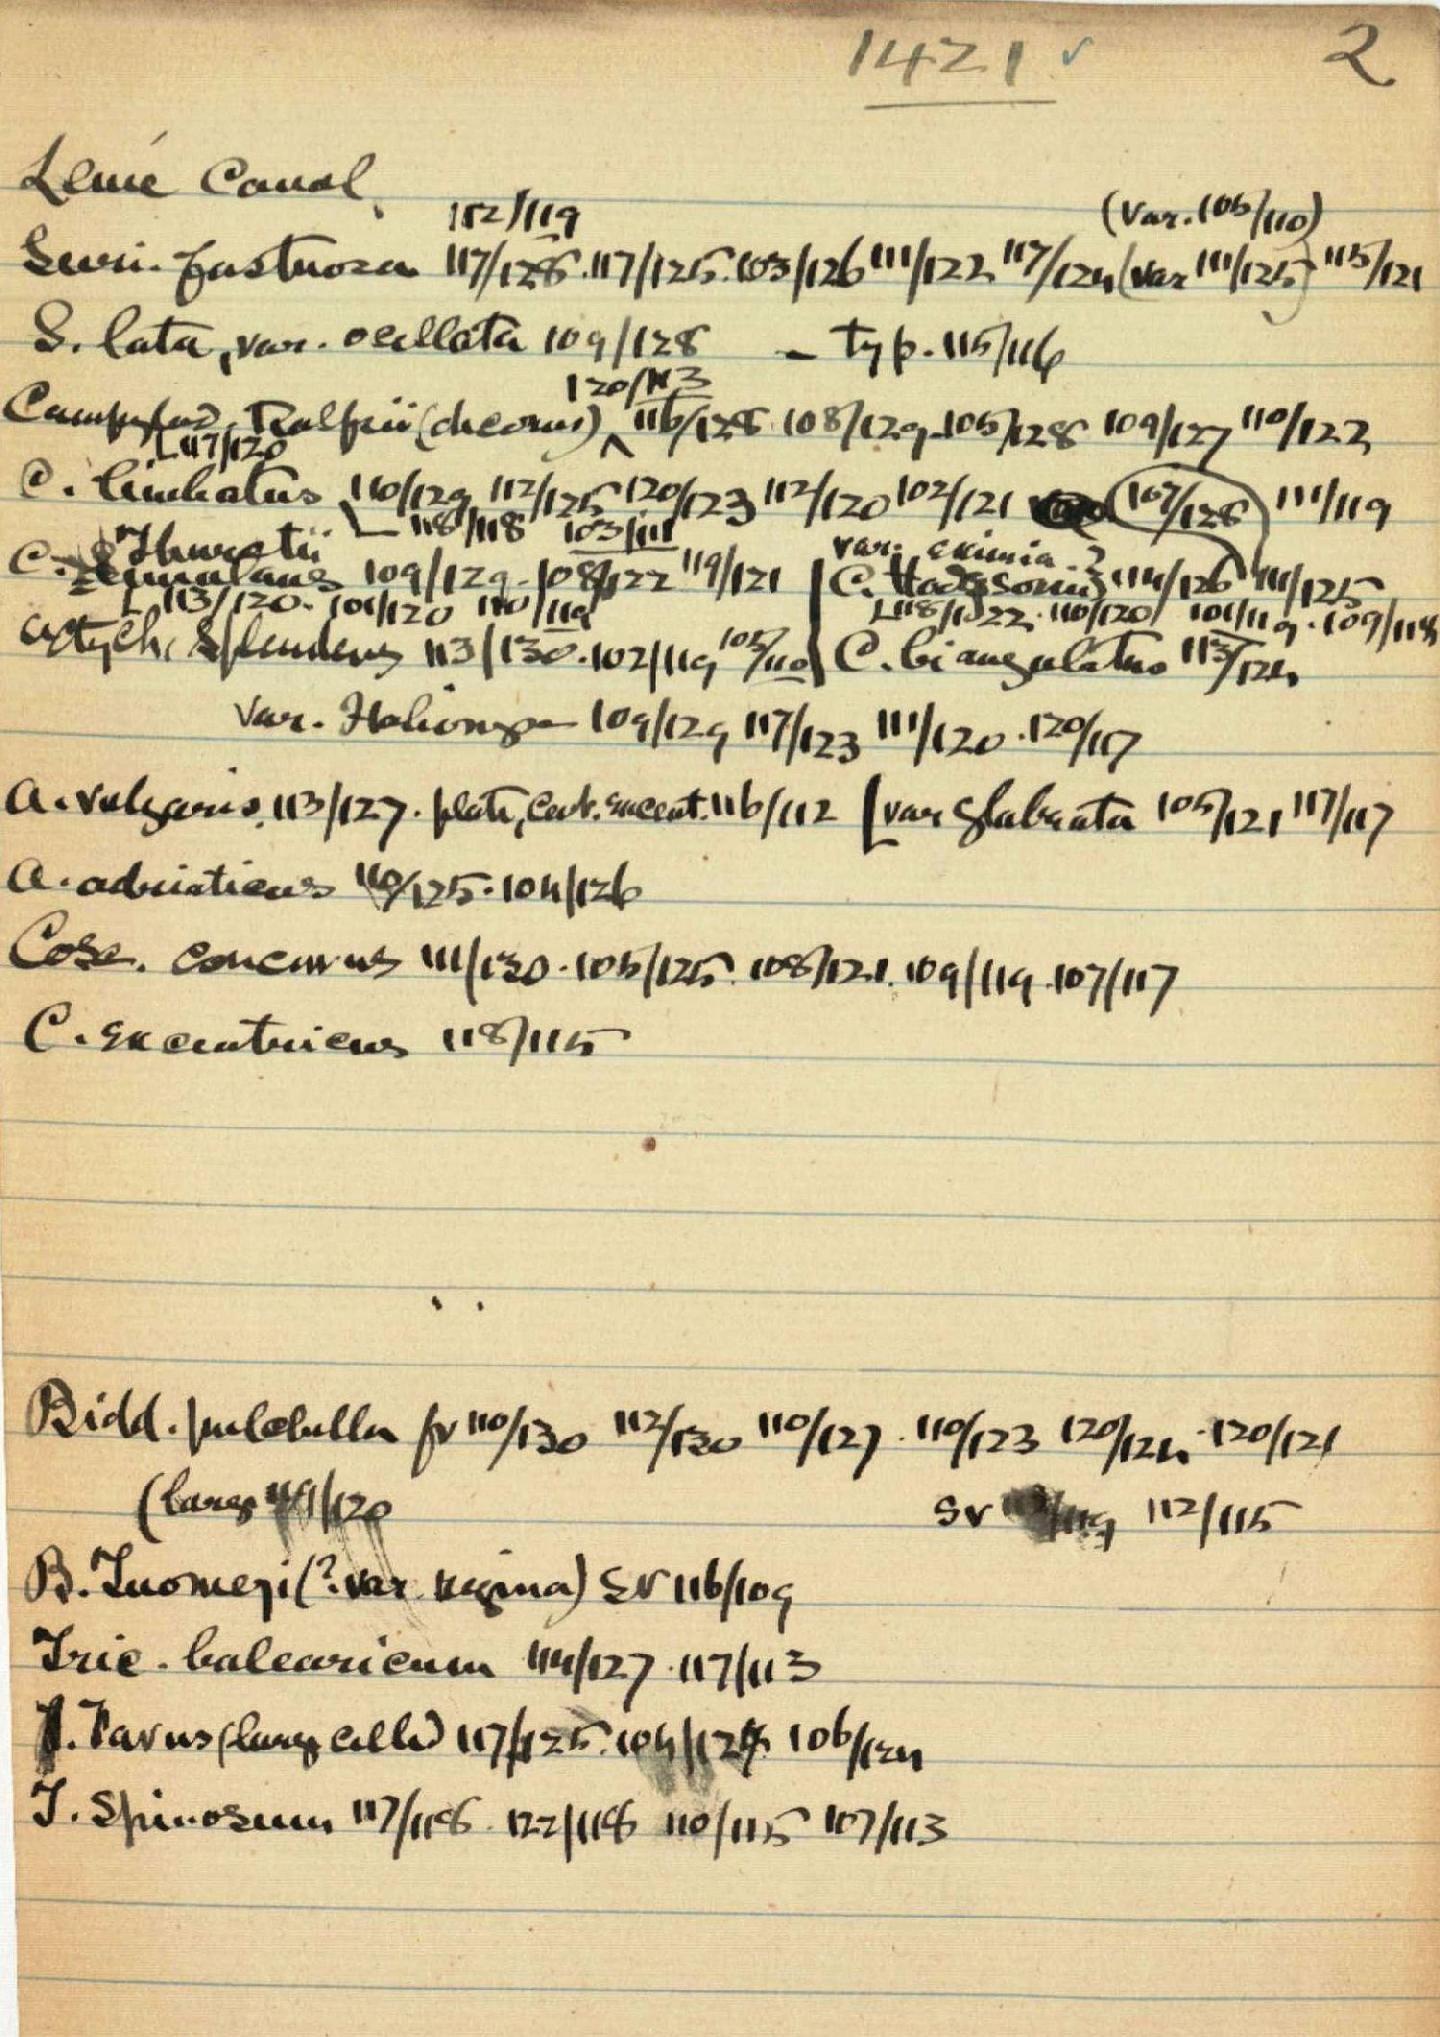 1421 ✓ 2
Lemé Canal.
112/119 (var. 106/110)
Suri. fastuosa 117/128. 117/125. 103/126 111/122 117/124 (var 111/125) 115/121
S. lata, var. ocellata 109/128 — typ. 115/116
120/113
Ralfsii 116/128 108/129. 105/128 109/127 110/122
117/120
C. limbatus 110/129 112/125 120/123 112/120 102/121 107/128 111/119
118/118 103/111
Thuretii var. eximia ?
C. 109/129. 108/122 119/121 C. Hodgsonii 114/126 111/125
113/120. 101/120 110/119 118/122. 110/120 101/119. 109/118
Actych. splendens 113/130. 102/119 105/110 C. biangulatus 113/124
var. 109/129 117/123 111/120. 120/117
A. vulgaris. 113/127. 116/112 [var glabrata 105/121 117/117
A. adriaticus 110/125. 104/126
Cosc. concavus 111/130. 105/125. 108/121. 109/119. 107/117
C. excentricus 118/115
Bidd. pulchella fv 110/130 112/130 110/127. 110/123 120/124. 120/121
(large 119/120 sv /119 112/115
B. Tuomeyi (?. var regina) sv 116/109
Tric. balearicum 114/127. 117/113
T. Favus (large cells) 117/125. 104/124. 106/124
T. spinosum 117/118. 122/118 110/115 107/113